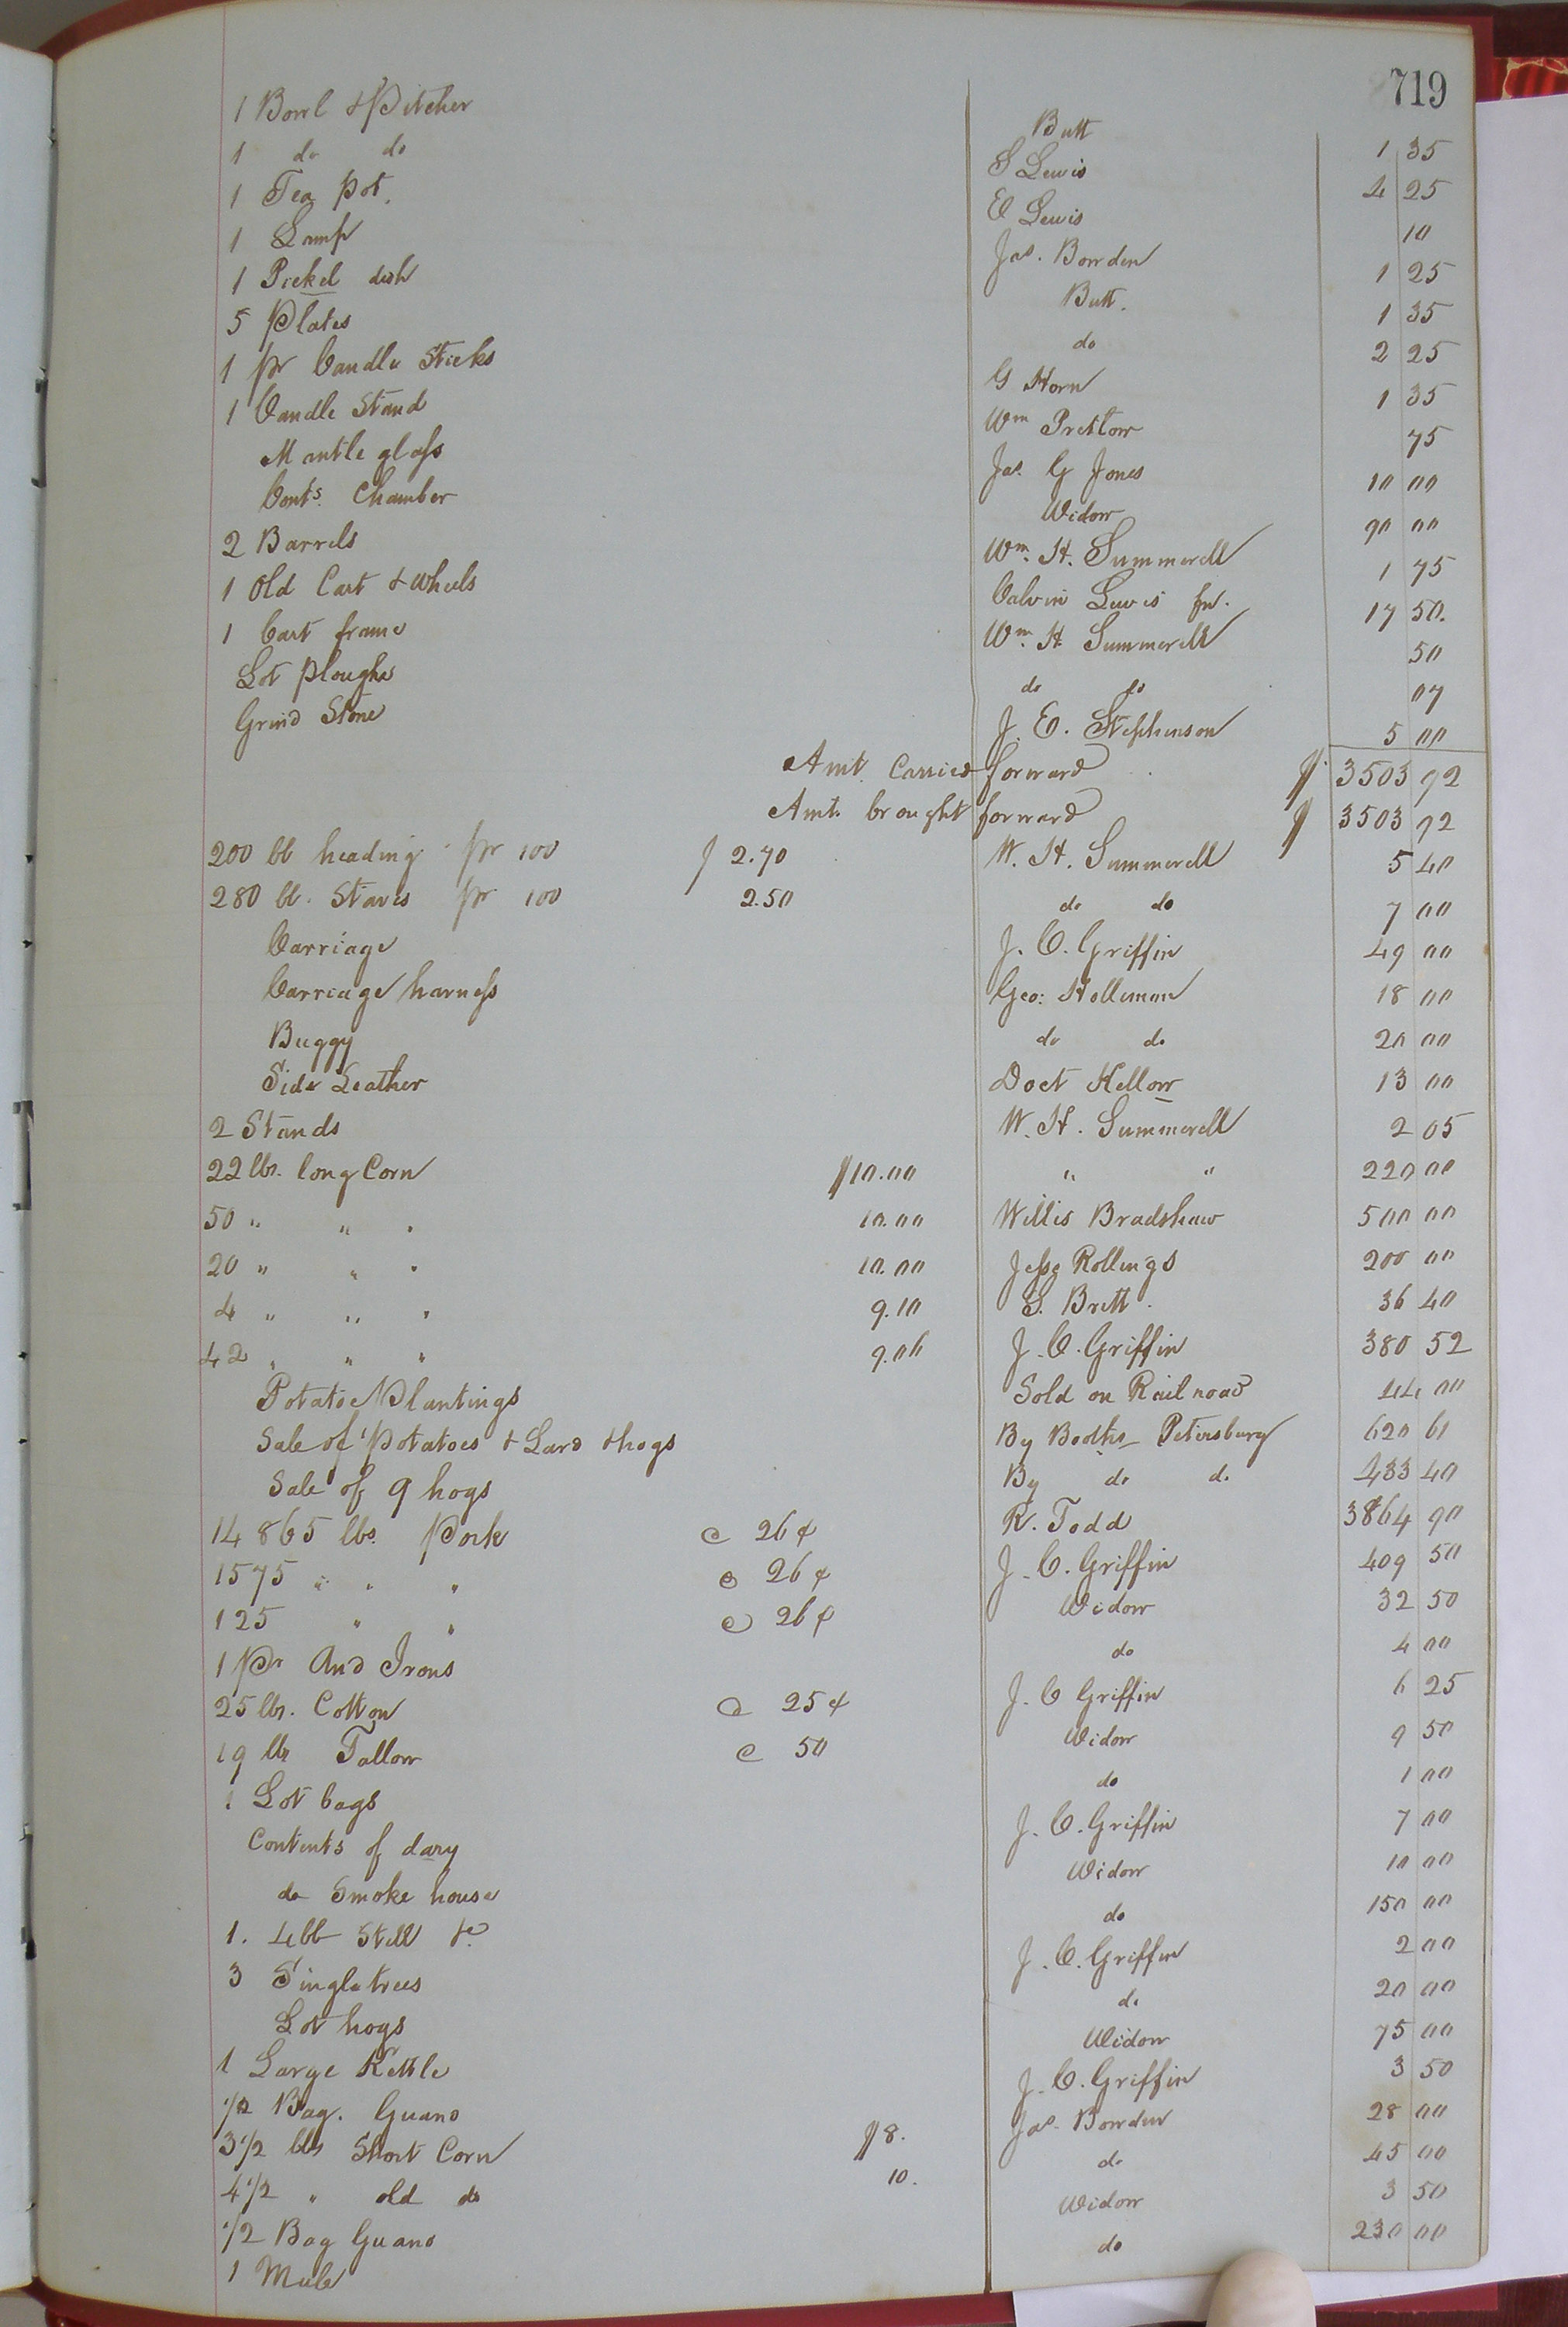 719
1 Bowl & Pitcher Butt 1 35
1 do do S Lewis 4 25
1 Tea Pot. E Lewis 10
1 Lamp Jas. Bowden 1 25
1 Pickel dish Butt. 1 35
5 Plates do 2 25
1 pr Candle Sticks G Horn 1 35
1 Candle Stand Wm Pretlow 75
Mantle glass Jas. G Jones 10 00
Conts. Chamber Widow 90 00
2 Barrels Wm. H. Summerell 1 75
1 Old Cart & Wheels Calvin Lewis fn. 17 50.
1 Cart frame Wm. H Summerell 50
Lot Ploughs do do 07
Grind Stone J. E. Stephenson 5 00
Amt. Carried forward $ 3503 92
Amt. brought forward $ 3503 92
200 bb heading pr 100 $ 2.70 W. H. Summerell 5 40
280 bb. Staves pr 100 2.50 do do 7 00
Carriage J. C. Griffin 49 00
Carriage harness Geo: Holleman 18 00
Buggy do do 20 00
Side Leather Doct Kellow 13 00
2 Stands W. H. Summerell 2 05
22 lbs. long Corn $10.00 " " 220 00
50 " " " 10.00 Willis Bradshaw 500 00
20 " " " 10.00 Jesse Rollings 200 00
4 " " " 9.10 S. Britt. 36 40
42 " " " 9.06 J. C. Griffin 380 52
Potatoe Plantings Sold on Rail road 44 00
Sale of Potatoes & Lard & hogs By Booths Petersburg 620 61
Sale of 9 hogs By do do 433 40
14865 lbs. Pork @ 26 ¢ R. Todd 3864 90
1575 " " " @ 26 ¢ J. C. Griffin 409 50
125 " " @ 26 ¢ Widow 32 50
1 Pr And Irons do 4 00
25 lbs. Cotton @ 25 ¢ J. C Griffin 6 25
19 lbs Tallow @ 50 Widow 9 50
1 Lot bags do 1 00
Contents of dary J. C. Griffin 7 00
do Smoke house Widow 10 00
1. 4 bb Still &c. do 150 00
3 Singletrees J. C. Griffin 2 00
Lot hogs do 20 00
1 Large Kettle Widow 75 00
1/2 Bag. Guano J. C. Griffin 3 50
3 1/2 bbs Short Corn $8. Jas. Bowden 28 00
4 1/2 " old do 10. do 45 00
1/2 Bag Guano Widow 3 50
1 Mule do 230 00